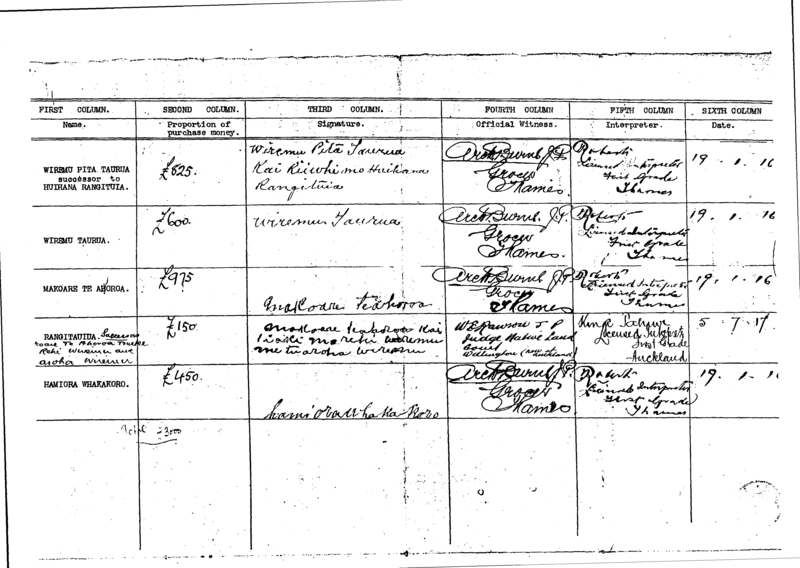 FIRST COLUMN. SECOND COLUMN. THIRD COLUMN. FOURTH COLUMN FIFTH COLUMN SIXTH COLUMN
Name. Proportion of purchase money. Signature. Official Witness. Interpreter. Date.
WIREMU PITA TAURUA
successor to
HUIHANA RANGITUIA.
£825.
Wiremu Pita Taurua
Kai Riiwhi mo Huihana
Rangituia
Arch Burns J.P.
Grocer
Thames
Licensed Interpreter
First Grade
Thames
19 . 1 . 16
WIREMU TAURUA.
£600.
Wiremu Taurua
Arch Burns J.P.
Grocer
Thames.
Licensed Interpreter
First Grade
Thames
19 . 1 . 16
MAKOARE TE AHOROA.
£975
Makoare Teahoroa
Arch Burns J.P.
Grocer
Thames
Licensed Interpreter
First Grade
Thames
19. 1 . 16
RANGITAUIDA.
£150
Makoare Teahoroa Kai
wiremu
wiremu
J P
Judge Native Land
Court
Wellington
Licensed
First Grade
Auckland
5 . 7 . 17
HAMIORA WHAKAKORO.
£450.
hamiora whaka Koro
Arch Burns J.P.
Grocer
Thames
Licensed Interpreter
First Grade
Thames
19 . 1 . 1
Total £3000